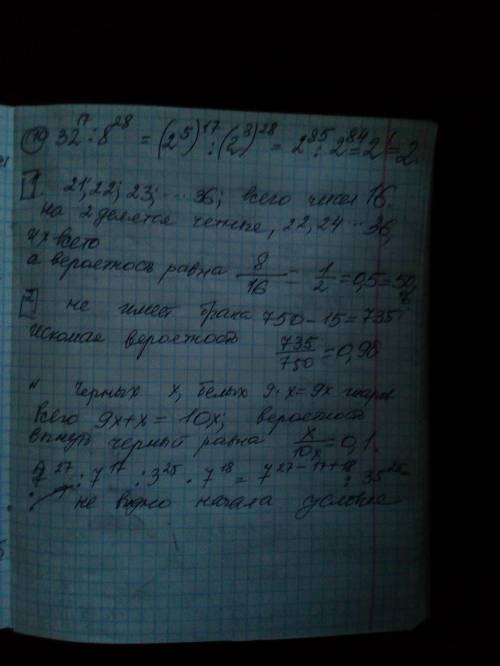 19 32¹⁷ : 8²⁸ = (2⁵)¹⁷ : (2³)²⁸ = 2⁸⁵ : 2⁸⁴ = 2¹ = 2.
1. 21; 22; 23; ... 36; всего чисел 16.
на 2 делятся четные, 22, 24 ... 36,
их всего
а вероятность равна 8/16 = 1/2 = 0,5 = 50%
2 не имеет брака 750 - 15 = 735
Искомая вероятность 735/750 = 0,98
черных x, белых 9·x = 9x шаров
Всего 9x + x = 10x; вероятность
вынуть черный равна x/10x = 0,1.
7²⁷ : 7¹⁷ : 3²⁵ · 7¹⁸ = 7²⁷⁻¹⁷⁺¹⁸ : 35²⁵
не видно начала условия